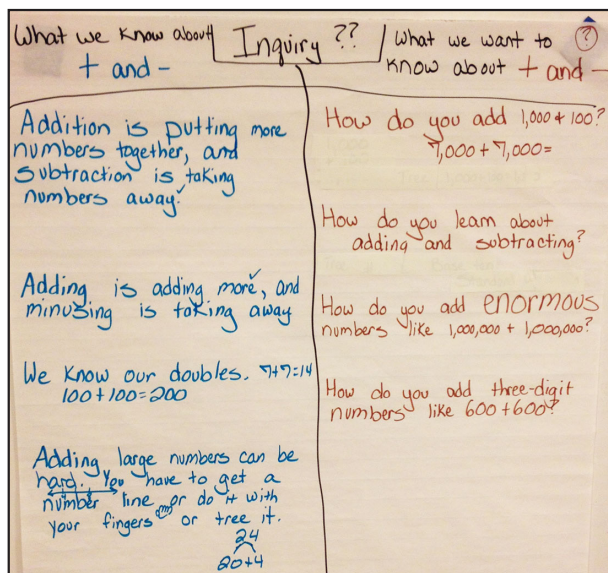 What we know about
+ and -
Inquiry ??
What we want to
know about + and -
?
Addition is putting more
numbers together, and
subtraction is taking
numbers away.
Adding is adding more, and
minusing is taking away
We know our doubles. 7+7=14
100+100=200
Adding large numbers can be
hard. You have to get a
number line or do it with
your fingers or tree it.
24
20+4
How do you add 1,000+100?
7,000+7,000=
How do you learn about
adding and subtracting?
How do you add enormous
numbers like 1,000,000 + 1,000,000?
How do you add three-digit
numbers like 600+600?